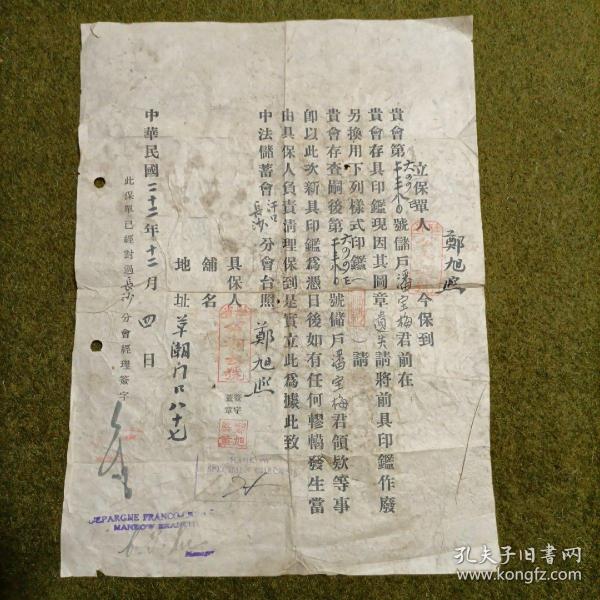 立保單人 鄭旭熙 今保到
貴會第 號儲戶潘宝梅君前在
貴會存具印鑑現因其圖章遺失請將前具印鑑作廢
另換用下列樣式印鑑（ ）請
貴會存查嗣後第 號儲戶潘宝梅君領欵等事
卽以此次新具印鑑爲憑日後如有任何轇轕發生當
由具保人負責清理保到是實立此爲據此致
中法儲蓄會漢口長沙分會台照
具保人 鄭旭熙 簽字蓋章
舖名
地址 草潮门口八十七
中華民國二十二年十二月四日
此保單已經對過長沙分會經理簽字
EPARGNE FRANCO
HANKOW BRANCH
Manager
孔夫子旧书网
www.kongfz.com